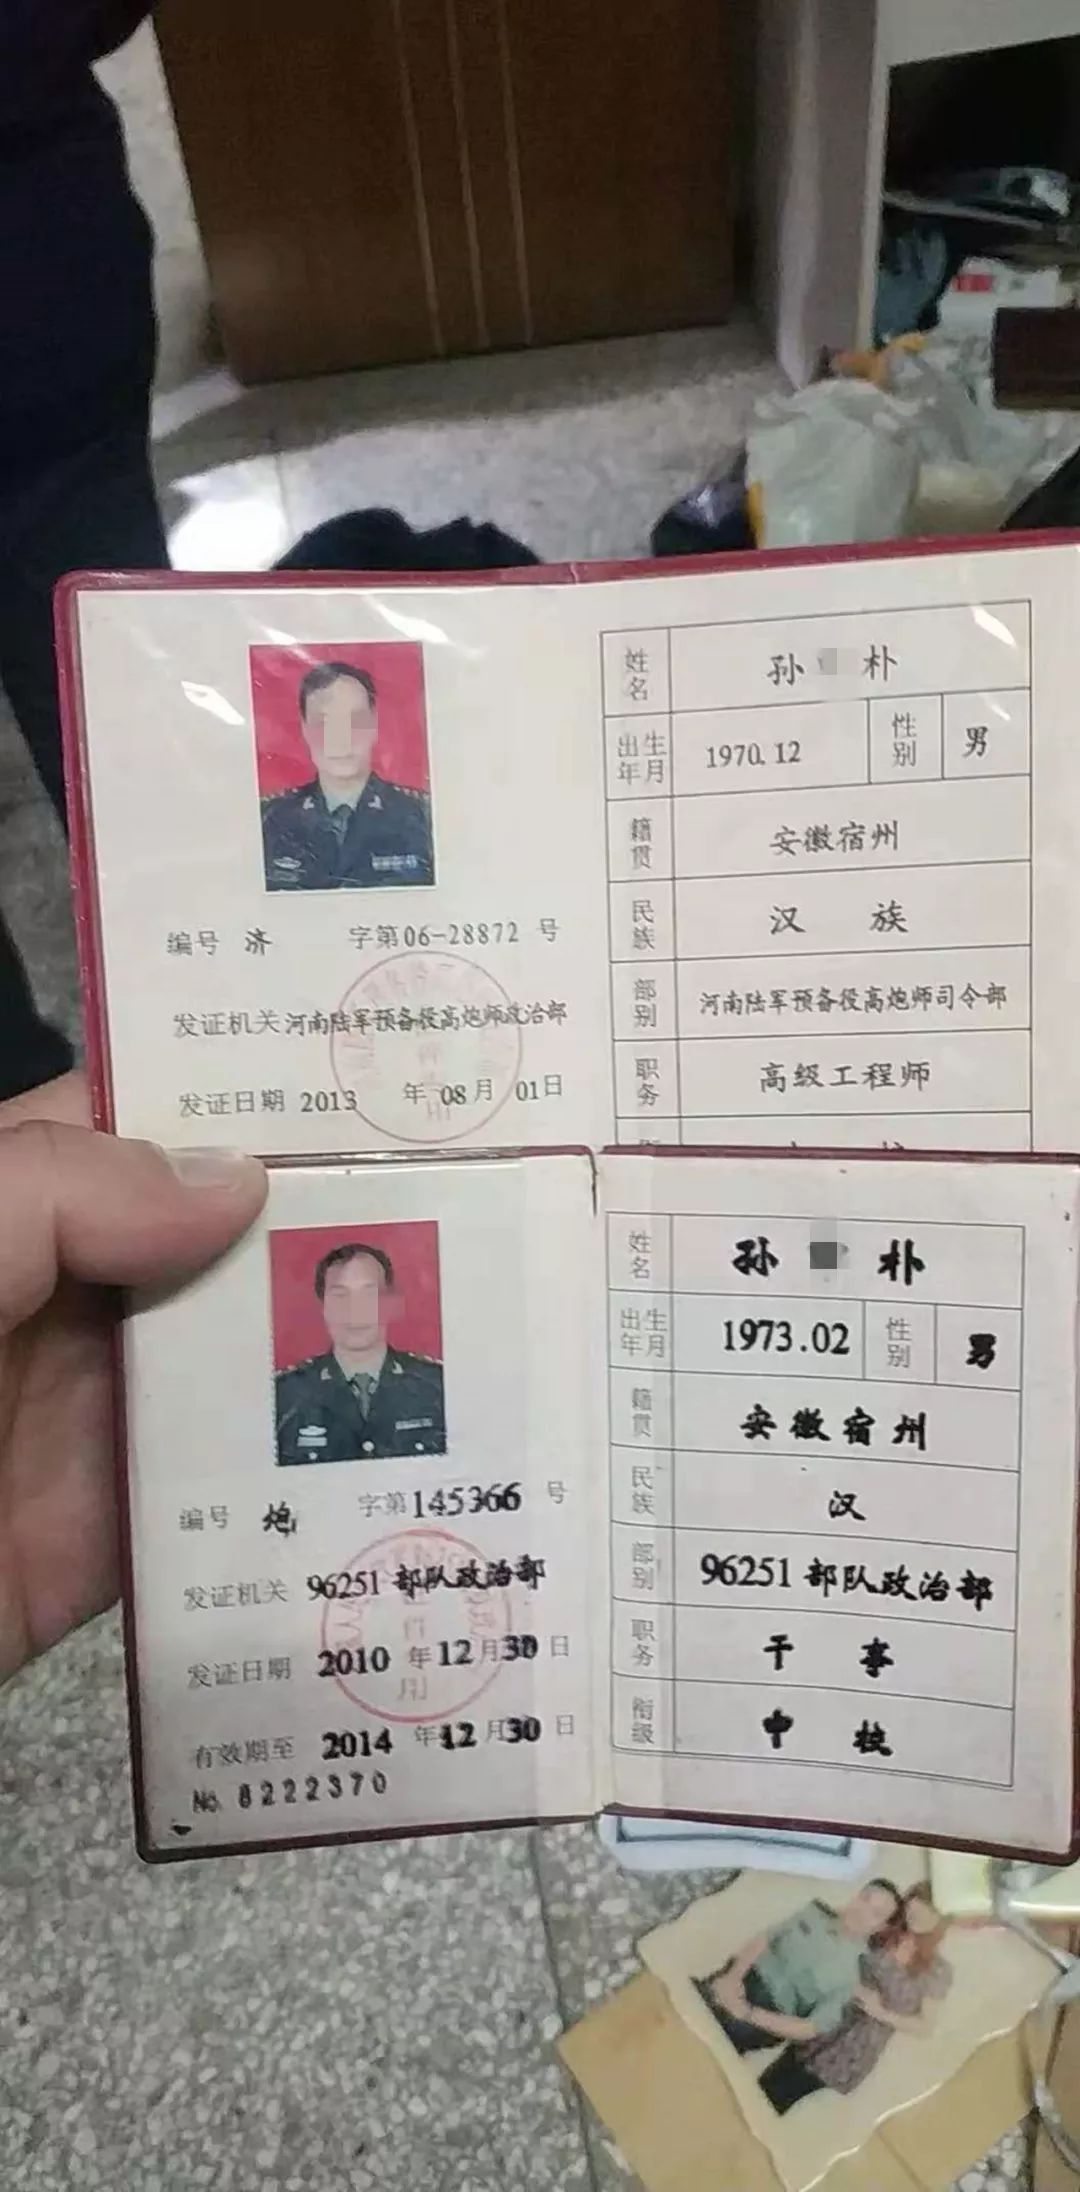 编号 济 字第06-28872 号
发证机关 河南陆军预备役高炮师政治部
发证日期 2013 年 08月 01日
姓名 孙 朴
出生年月 1970.12 性别 男
籍贯 安徽宿州
民族 汉 族
部别 河南陆军预备役高炮师司令部
职务 高级工程师
编号 炮 字第145366 号
发证机关 96251 部队政治部
发证日期 2010 年 12 月 30 日
有效期至 2014 年 12 月 30 日
No. 8222370
姓名 孙 朴
出生年月 1973.02 性别 男
籍贯 安徽宿州
民族 汉
部别 96251 部队政治部
职务 干 事
衔级 中 校